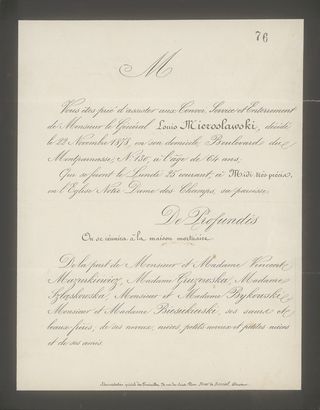 76
M
Vous êtes prié d'assister aux Convoi, Service et Enterrement
de Monsieur le Général Louis Mierosławski, décédé
le 22 Novembre 1878, en son domicile, Boulevard du
Montparnasse, N° 136, à l'âge de 64 ans;
Qui se feront le Lundi 25 courant, à Midi très précis,
en l'Eglise Notre Dame des Champs, sa paroisse.
De Profundis
On se réunira à la maison mortuaire.
De la part de Monsieur et Madame Vincent
Mazurkiewicz, Madame Madame
Monsieur et Madame Bykowski,
Monsieur et Madame ses sœurs et
beaux frères, de ses neveux, nièces, petits neveux et petites nièces
et de ses amis.